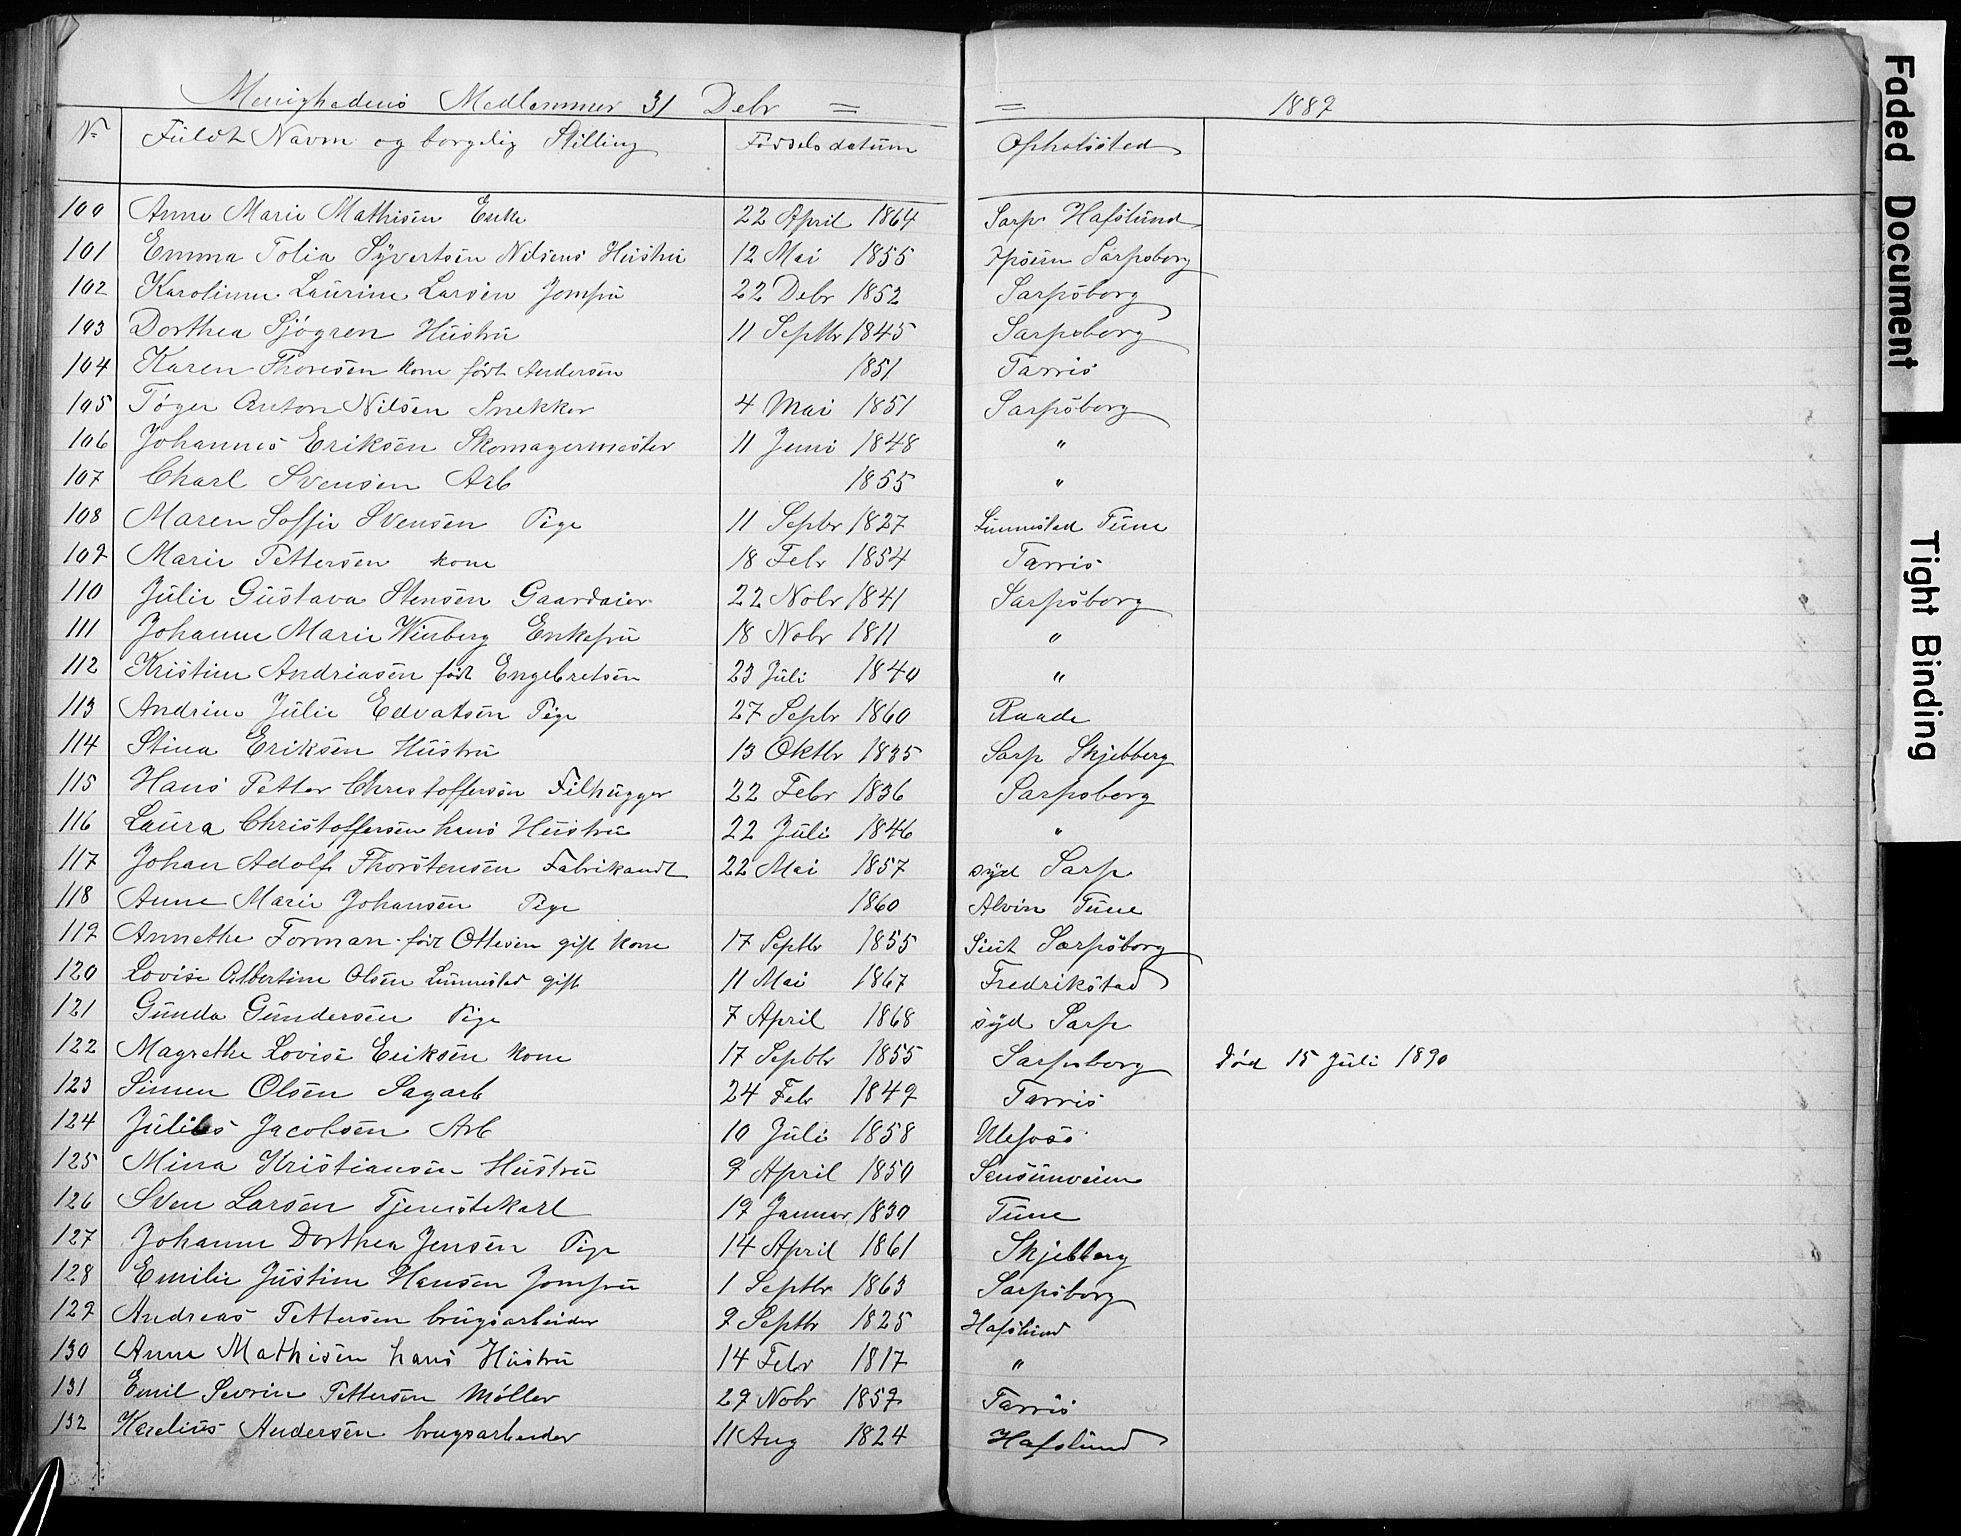 Menighedens Medlemmer 31 Debr = = 1889
No Fuldt Navn og borgelig Stilling Fødselsdatum Opholdsted
100 Anne Marie Mathisen Enke 22 April 1864 Sarp Hafslund
101 Emma Tolia Syvertsen Nilsens Hustru 12 Mai 1855 Sarpsborg
102 Karoline Laurine Larsen Jomfru 22 Debr 1852 Sarpsborg
103 Dorthea Sjögren Hustru 11 Septbr 1845 Sarpsborg
104 Karen Thoresen kone født Andersen 1851 Tarris
105 Tøger Anton Nilsen Snekker 4 Mai 1851 Sarpsborg
106 Johannes Eriksen Skomagermester 11 Juni 1848 "
107 Charl Svensen Arb 1855 "
108 Maren Soffie Svensen Pige 11 Sepbr 1827 Tune
109 Marie Pettersen kone 18 Febr 1854 Tarris
110 Julie Gustava Stensen Gaardaier 22 Nobr 1841 Sarpsborg
111 Johanne Marie Winberg Enkefru 18 Nobr 1811 "
112 Kristine Andriasen født Engebretsen 23 Juli 1840 "
113 Andrine Julie Edvatsen Pige 27 Sepbr 1860 Raade
114 Stina Eriksen Hustru 13 Oktbr 1835 Sarp Skjebberg
115 Hans Petter Christoffersen Filhugger 22 Febr 1836 Sarpsborg
116 Laura Christoffersen hans Hustru 22 Juli 1846 "
117 Johan Adolf Thorstensen Fabrikandt 22 Mai 1857 syd Sarp
118 Anne Marie Johansen Pige 1860 Alvin Tune
119 Annethe Forman født Ottesen gift kone 17 Septbr 1855 Sarpsborg
120 Lovise Albertine Olsen gift 11 Mai 1867 Fredrikstad
121 Gunda Gundersen Pige 7 April 1868 syd Sarp
122 Magrethe Lovise Eriksen kone 17 Sepbtr 1855 Sarpsborg død 15 Juli 1890
123 Simen Olsen Sagarb 24 Febr 1849 Tarris
124 Julius Jacobsen Arb 10 Juli 1858 Ulefoss
125 Mina Kristiansen Hustru 9 April 1850
126 Sven Larsen Tjenstekarl 19 Januar 1830 Tune
127 Johanne Dorthea Jensen Pige 14 April 1861 Skjebberg
128 Emilie Justine Hansen Jomfru 1 Septbr 1863 Sarpsborg
129 Andreas Pettersen brugsarbeider 9 Septbr 1825 Hafslund
130 Anne Mathisen hans Hustru 14 Febr 1817 "
131 Emil Sevrin Pettersen Møller 29 Nobr 1859 Tarris
132 Karelius Andersen brugsarbeider 11 Aug 1824 Hafslund
Faded Document
Tight Binding